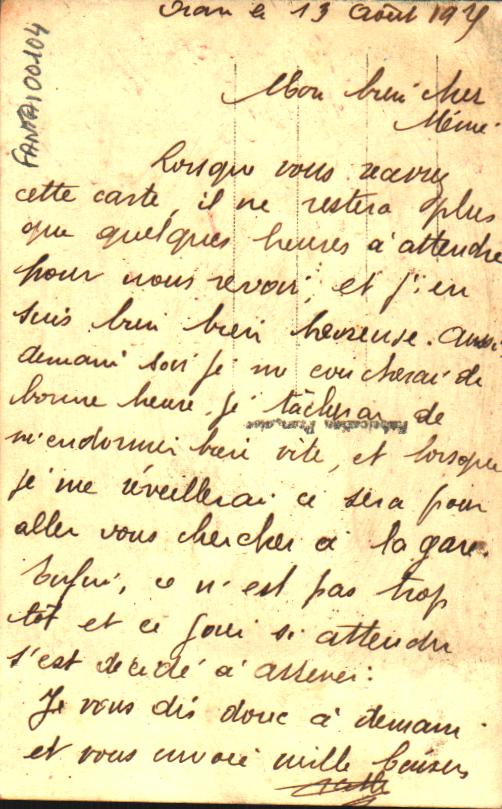 Oran le 13 Août 19
Mon bien cher
Mémé
Lorsque vous recevrez
cette carte, il ne restera plus
que quelques heures à attendre
pour nous revoir, et j'en
suis bien bien heureuse. Aussi
demain soir je me coucherai de
bonne heure, je tâcherai de
Fabrication Française
m'endormir bien vite, et lorsque
je me réveillerai ce sera pour
aller vous chercher à la gare.
Enfin, ce n'est pas trop
tôt et ce jour si attendu
s'est décidé à arriver.
Je vous dis donc à demain
et vous envoie mille baisers
FANTA100104